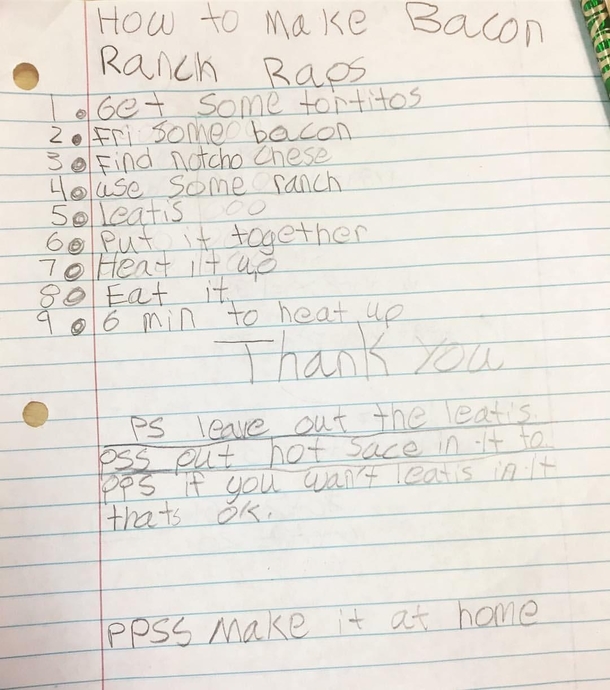 How to make Bacon
Ranch Raps
1. Get some tortitos
2. Fri some bacon
3. Find notcho chese
4. use some ranch
5. leatis
6. Put it together
7. Heat it up
8. Eat it
9. 6 min to heat up
Thank You
PS leave out the leatis
pss put hot sace in it to
pps if you want leatis in it
thats ok.
PPSS Make it at home